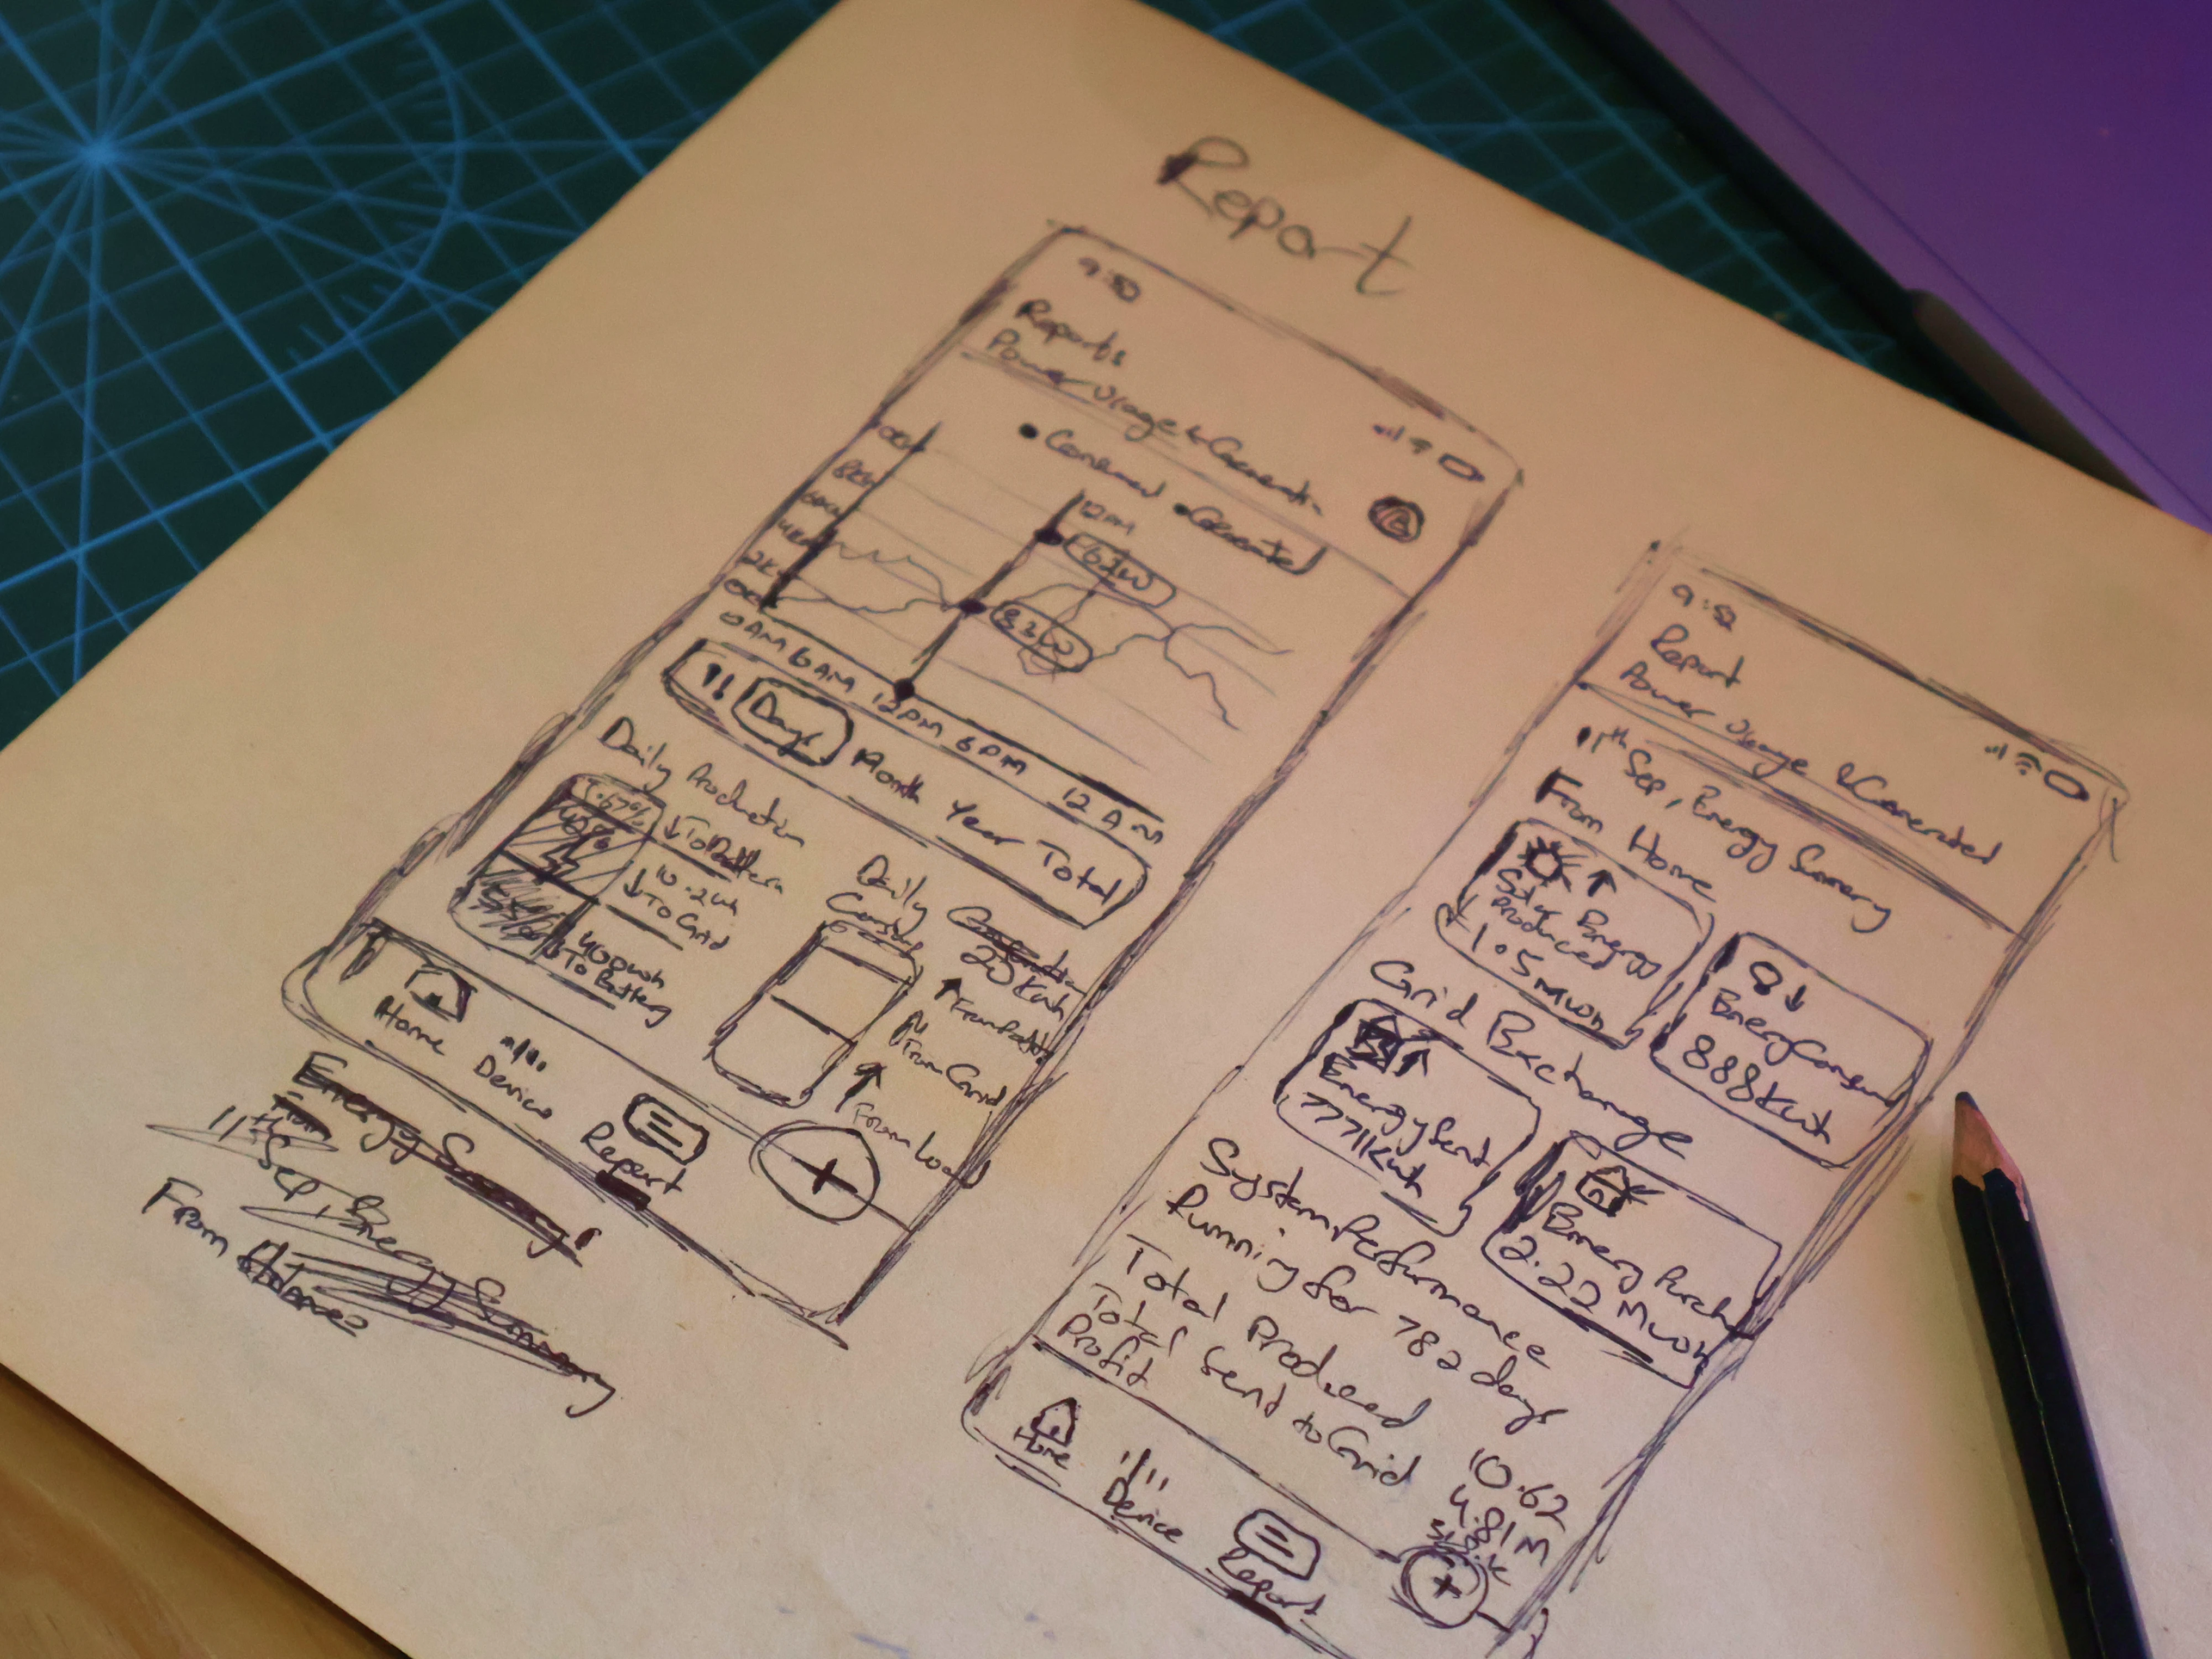 Report
9:52
Reports
Power Usage & Generation
Consumed Generated
8KW
6KW
4KW
2K
12PM
62W
82W
0AM 6AM 12PM 6PM 12AM
Days Month Year Total
Daily Production
.67%
To Battery
10.2wh
To Grid
400wh
To Battery
Daily
Consump
20
Kwh
From Battery
From Grid
From load
Home
Device
Report
+
Energy Summary!
From
11th Sep, Energy Summary
From Home
9:52
Report
Power Usage & Generated
11th Sep, Energy Summary
From Home
Solar Energy
Produced
1.5Mwh
Energy Consum
888Kwh
Grid Exchange
Energy Sent
777Kwh
Energy Purch
2.22Mwh
System Performance
Running for 782 days
Total Produced
10.62
Total Send to Grid
4.81M
Profit
Home
Device
Report
+